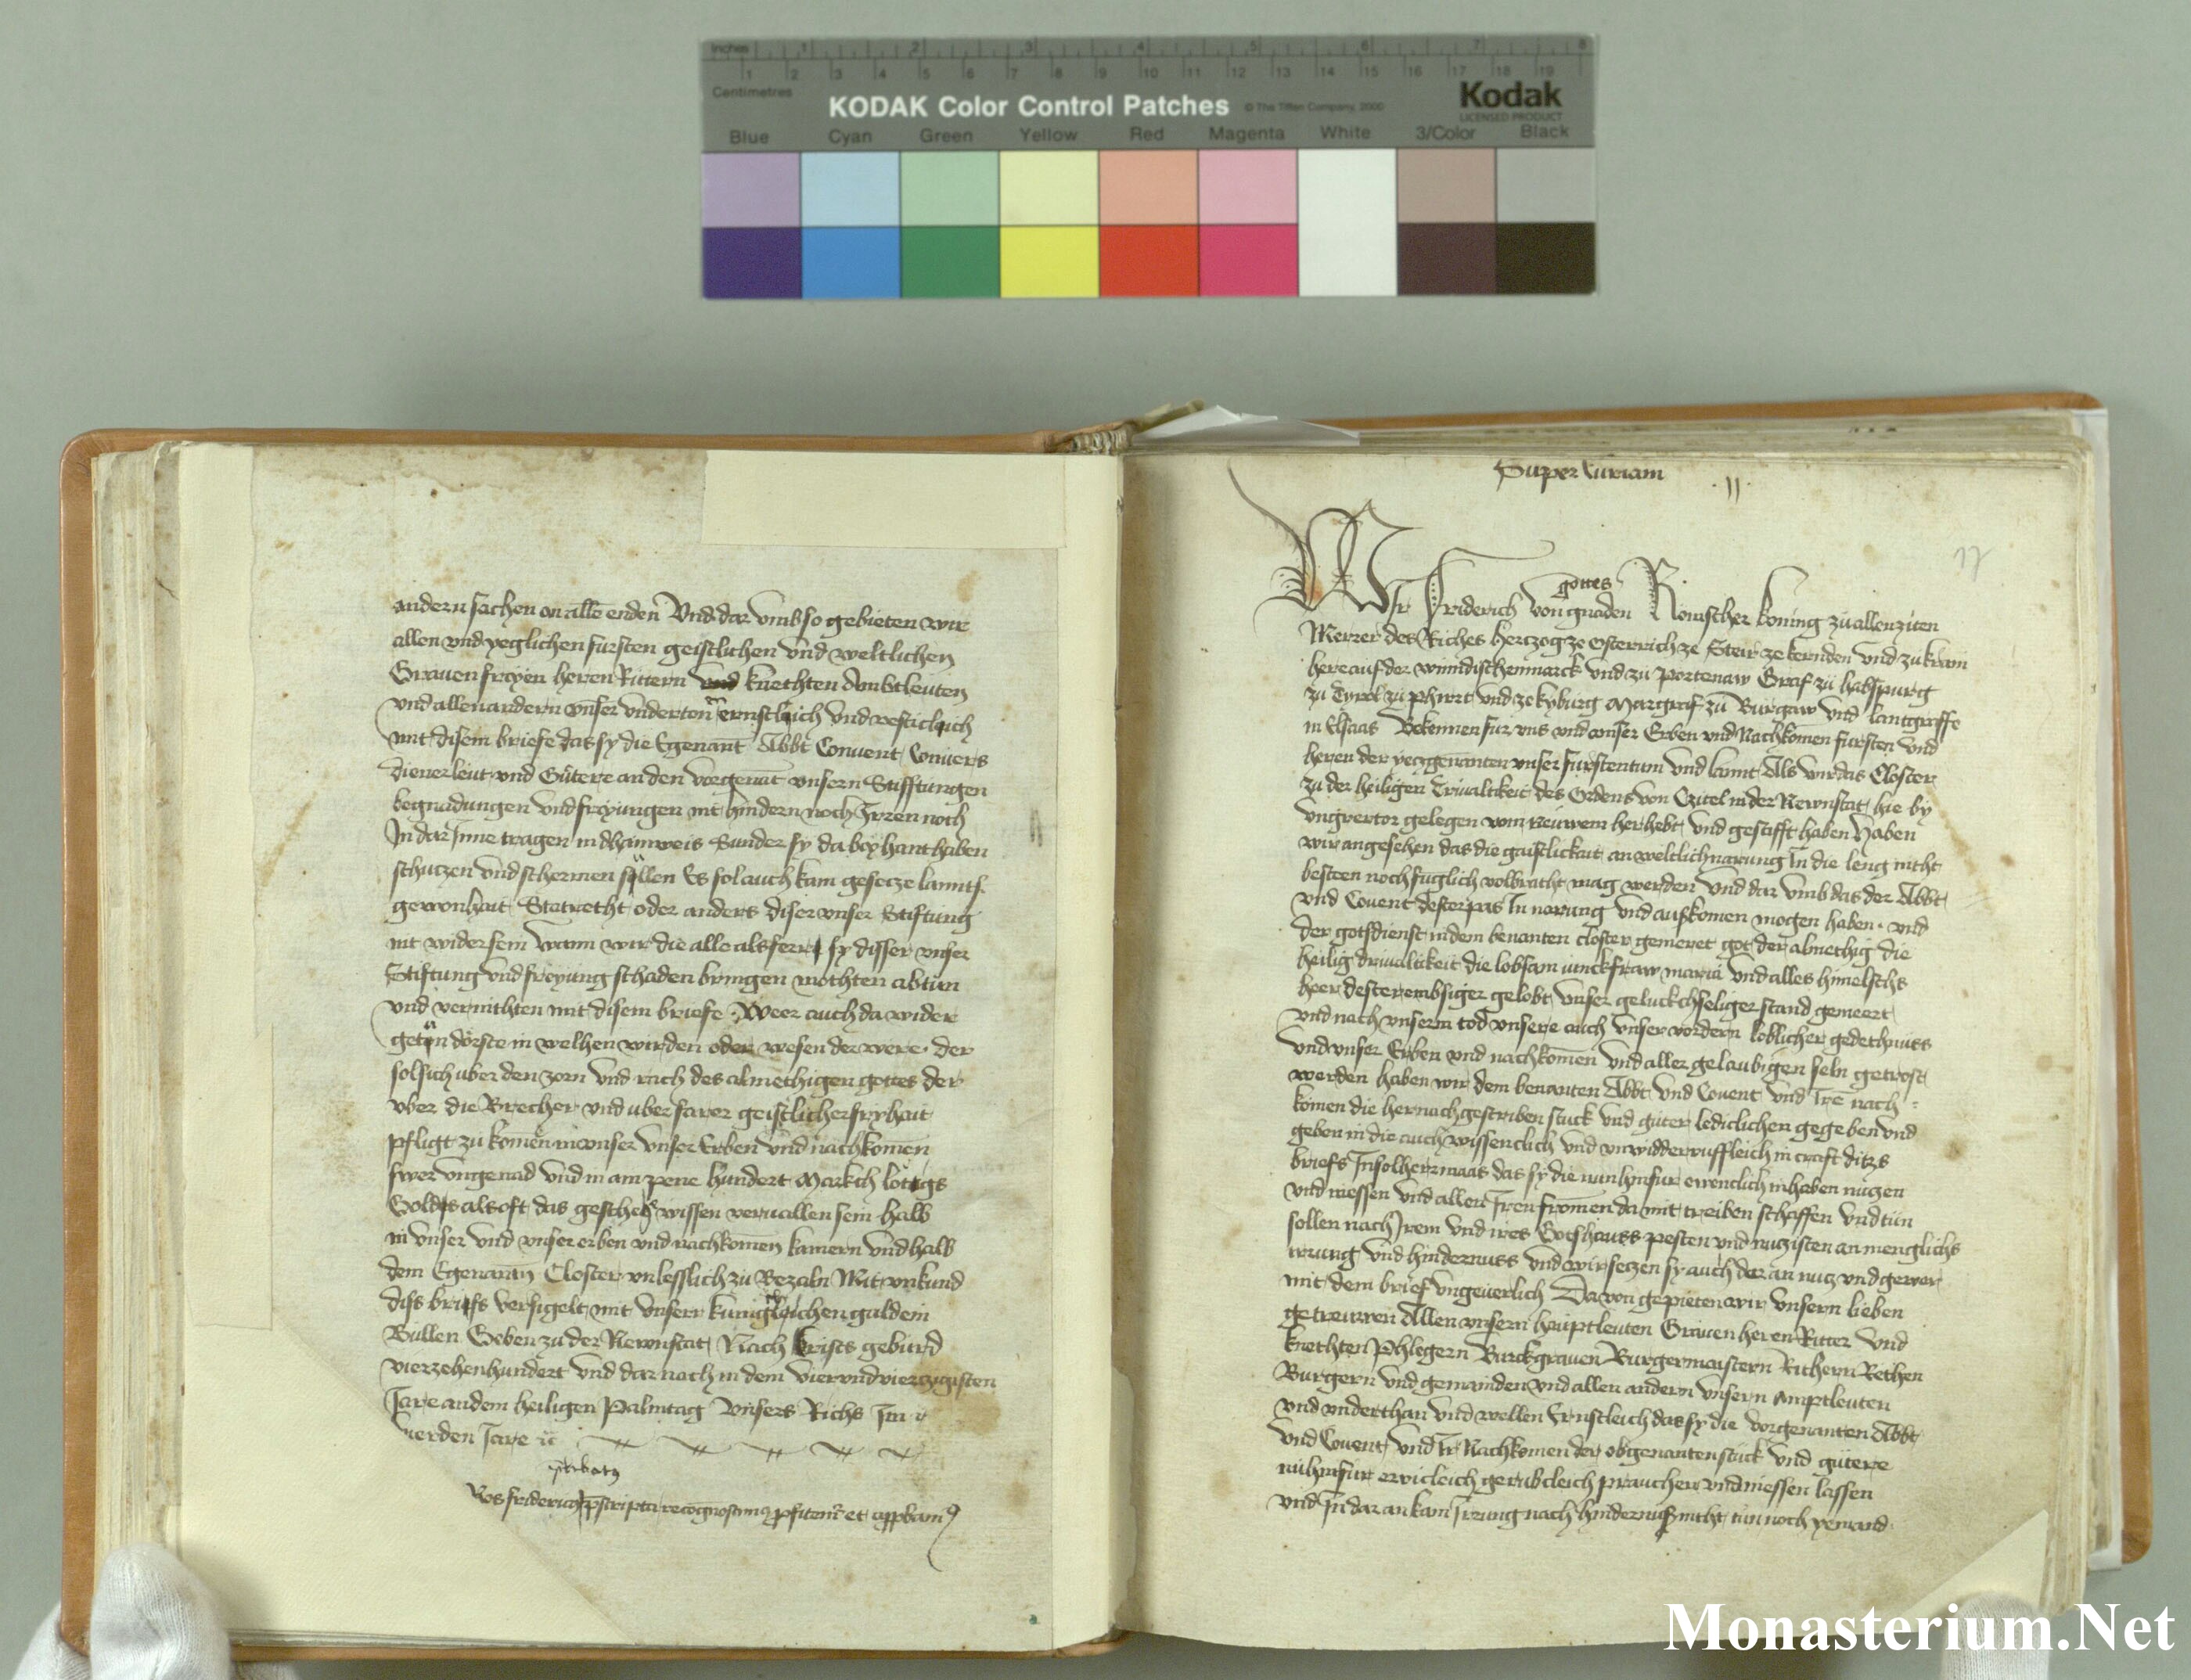 Inches 1 2 3 4 5 6 7 8
1 2 3 4 5 6 7 8 9 10 11 12 13 14 15 16 17 18 19
Centimetres
KODAK Color Control Patches © The Tiffen Company, 2000 Kodak
LICENSED PRODUCT
Blue Cyan Green Yellow Red Magenta White 3/Color Black
andern sachen an allē enden Und dar vmb so gebieten wir
allen vnd yeglichen fursten geistlichen vnd weltlichen
Grauen freyen heren Rittern vnd knechten Ambtleuten
vnd allen andern vnser vnderton ernstleich vnd vesticleich
mit disem briefe das sy die Egenant Abbt Conuent Conuers
diener leut vnd Gütere an den vorgenāt vnsern Stifftungen
begnadungen vnd freyungen nit hindern noch Irren noch
In dar Inne tragen in dhainweis Sunder sy da bey hanthaben
schuczen vnd schermen söllen Es sol auch kain gesecze lannts
gewonhait Stetrecht oder anders diser vnser Stiftung
nit wider sein wann wir die alle als ferr sy disser vnser
Stiftung vnd freyung schaden bringen mochten abtün
vnd vernichten mit disem briefe Weer auch da wider
getün dörste in welhen wirden oder wesen der were der
sol sich uber den zorn vnd rach des almechigen gottes der
vber die Brecher vnd uberfarer geistlicher fryhait
pfligt zu komen in vnser vnser Erben vnd nachkomen
swer vngenad vnd in ain pene hundert Markch lötigs
Golds als oft das geschehe wissen veruallen sein halb
in vnser vnd vnser erben vnd nachkomen kamern vnd halb
dem Egenantn Closter vnlesslich zu Bezaln Mit vrkund
diss briefs versigelt mit vnserr kunigleichen guldein
Bullen Geben zu der Newnstat Nach Cristi geburd
vierzehenhundert vnd dar nach in dem vierundvierczigisten
Jare an dem heiligen Palmtag Vnsers Richs Im
vierden Jare
Nos fridericus pscripta recognoscimus pfitemr et appbamus
Super Curiam
II
17
gottes
Wir Friderich von gnaden Romischer koning zu allen ziten
Merrer des Riches Hertzog ze Osterrich ze Steir ze kernden vnd zu krain
here auf der winndischenmarck vnd zu Portenaw Graf zu habspurg
zu Tyrol zu phirt vnd ze kyburg Margraf zu Burgaw vnd lantgraffe
in Elsaas Bekennen fur vns vnd vnser Erben vnd Nachkomen fursten vnd
heren der yeczgenanten vnser furstentum vnd lannt Als wir das Closter
zu der heiligen Triualtikeit des Ordens von Czitel in der Newnstat hie by
vngrertor gelegen von neuwem her hebt vnd gestifft haben Haben
wir angesehen das die gaistlickait an weltlich narung In die leng nicht
besteen noch fuglich volbracht mag werden vnd dar vmb das der Abbt
vnd Couent dester pas In narung vnd aufkomen mogen haben vnd
der gotsdienst in dem benanten closter gemeret got der almechig die
heilig driualtikeit die lobsam iunckfraw maria vnd alles himelschs
heer dester embsiger gelobt vnser geluckchseliger stand gemeert
vnd nach vnserm tod vnsere auch vnser vordern loblicher gedechnuss
vnd vnser Erben vnd nachkomen vnd aller gelaubigen seln getrost
werden haben wir dem benanten Abbt vnd Couent vnd Irē nach
komen die hernachgescriben stuck vnd guter lediclichen gegeben vnd
geben in die auch wissenclich vnd vnwidderruffleich in craft ditzs
briefs In solher maas das sy die nun hinfur ewenclich in haben nuczen
vnd niessen vnd allen Iren fromen da mit treiben schaffen vnd tün
sollen nach Irem vnd ires Gotshauss pesten vnd nuczisten an menglichs
irrung vnd hindernuss vnd wir seczen sy auch dar an nucz vnd gewer
mit dem brief vngeuerlich Da von gepieten wir vnsern lieben
getreuwen Allen vnsern hauptleuten Grauen heren Ritter vnd
knechten Phlegern Burckgrauen Burgermaistern Richern Rethen
Burgern vnd gemainden vnd allen andern vnsern Amptleuten
vnd vnderthan vnd wellen Ernstleich das sy die vorgenanten Abbt
vnd Couent vnd Ir Nachkomen der obgenanten stuck vnd gütere
nu hinfur ewicleich gerubcleich prauchen vnd niessen lassen
vnd In dar an kain Irrung nach hindernuß nicht tün noch yemand
Monasterium.Net